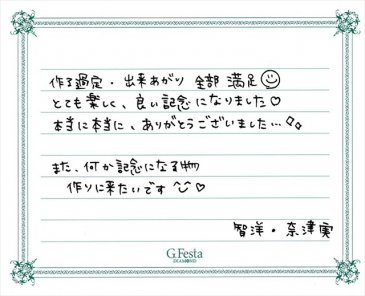 作る過定・出来あがり 全部 満足☺
とても楽しく、良い記念になりました♡
本当に本当に、ありがとうございました…✧
また、何か記念になる物
作りに来たいです ^‿^ ♡
智洋・奈津実
G.Festa
DIAMOND